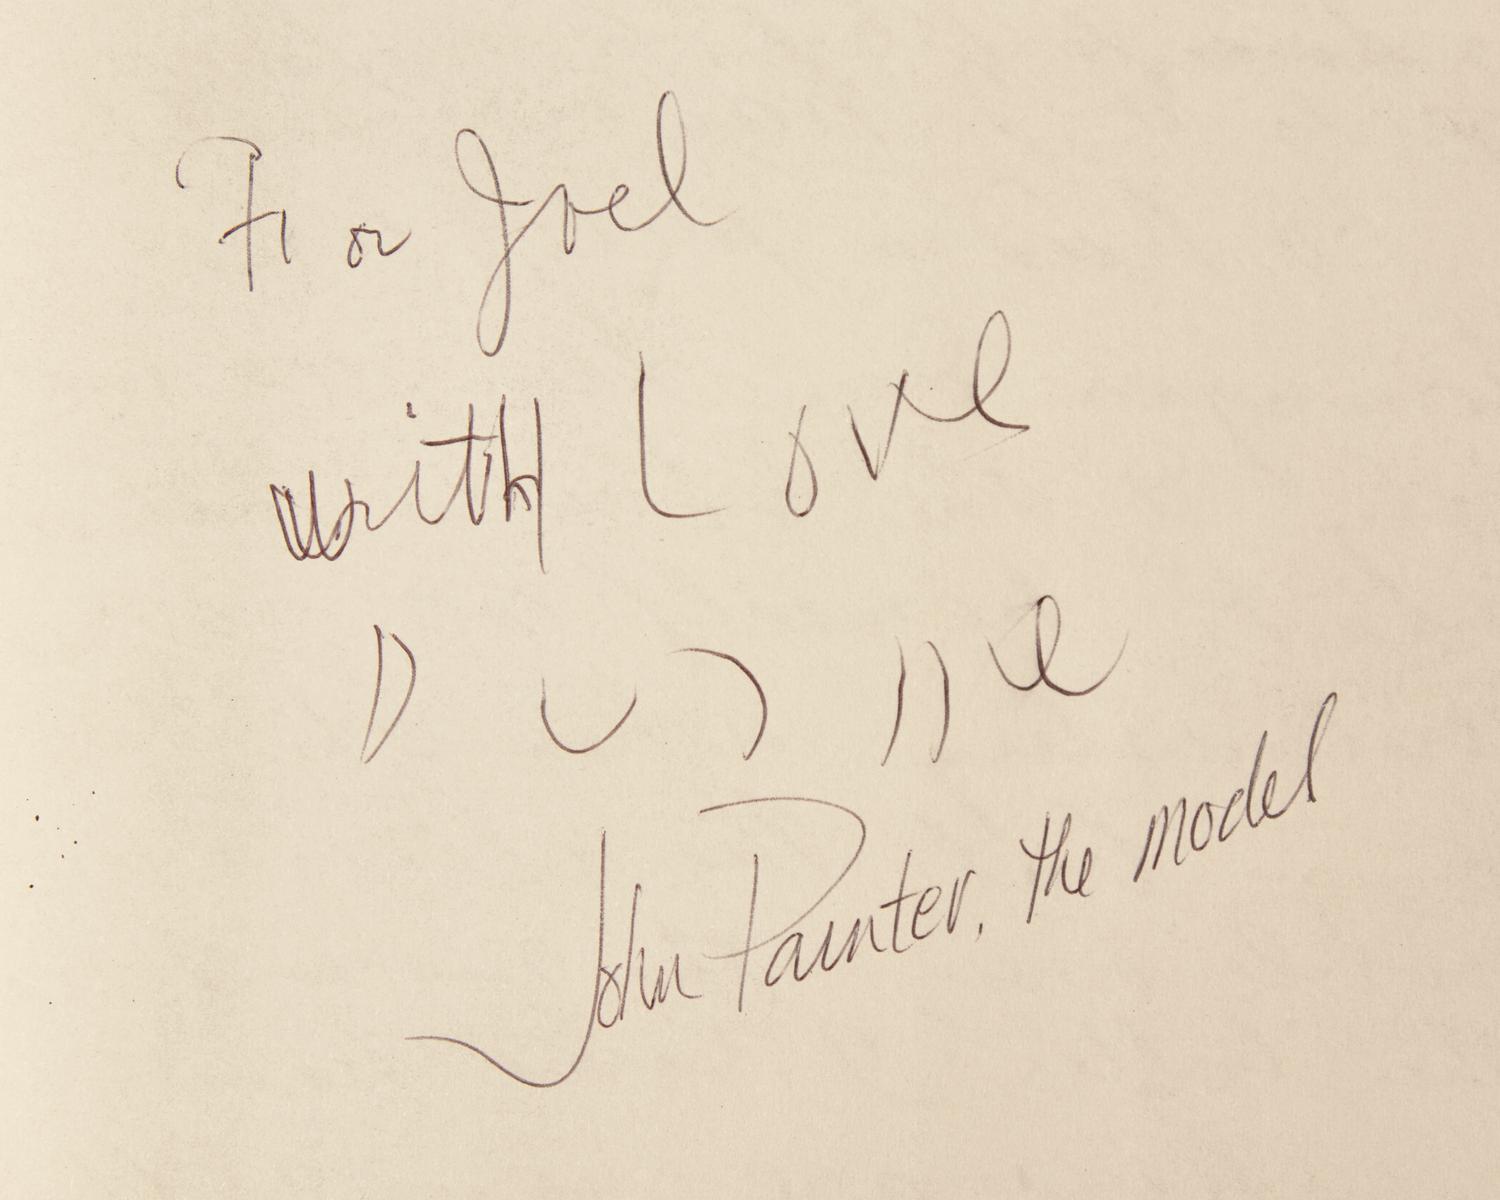 For Joel
with Love
Duane
John Painter, the model